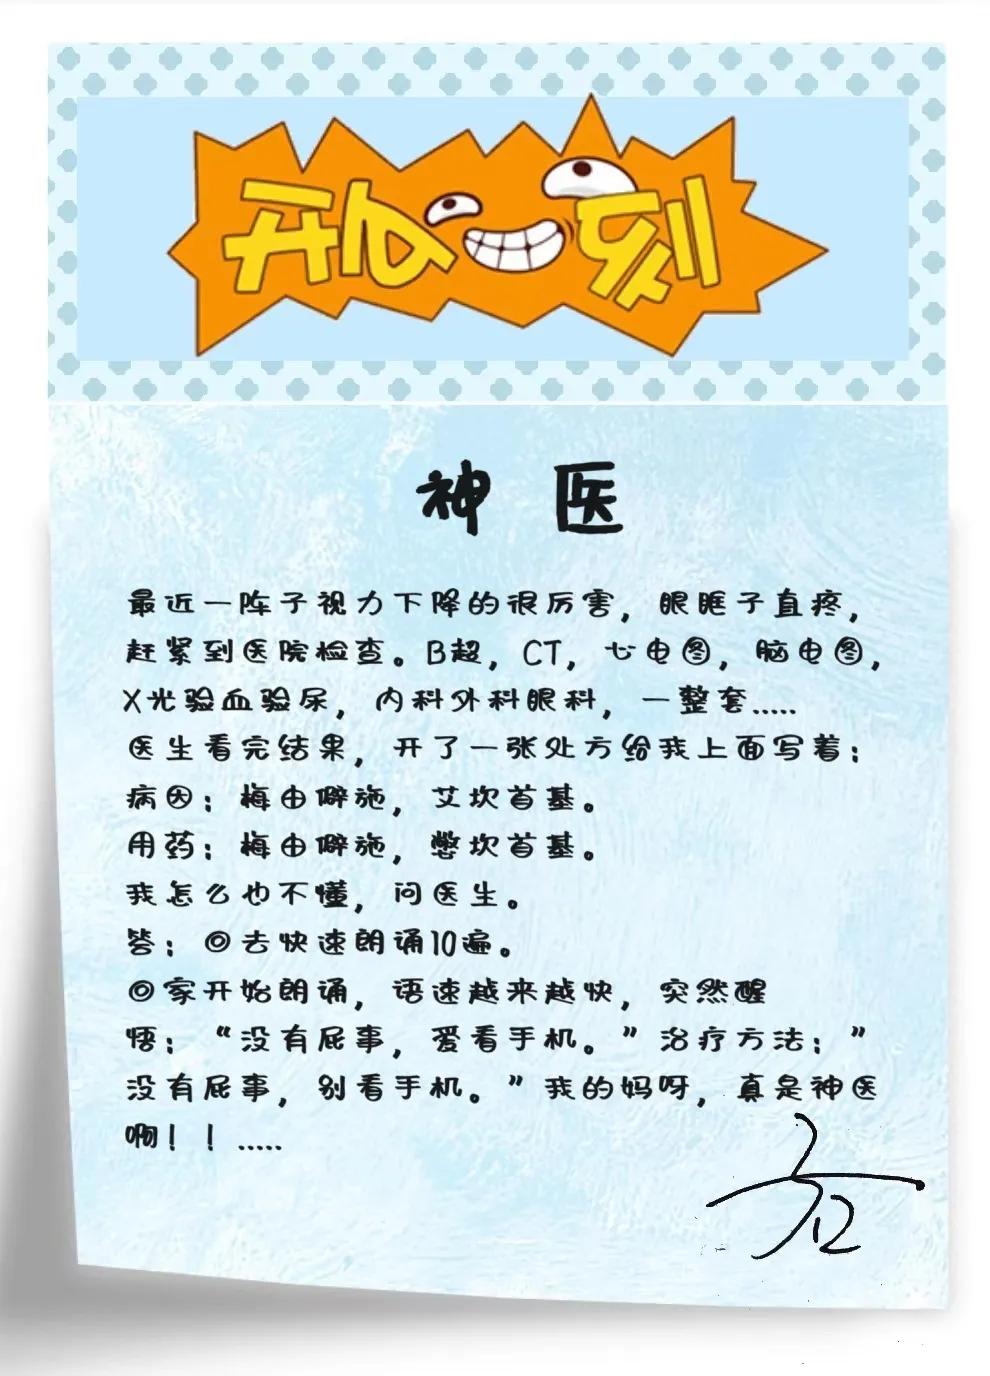 开心一刻
神医
最近一阵子视力下降的很厉害，眼眶子直疼，
赶紧到医院检查。B超，CT，心电图，脑电图，
X光验血验尿，内科外科眼科，一整套.....
医生看完结果，开了一张处方给我上面写着：
病因：梅由僻施，艾坎首基。
用药：梅由僻施，憋坎首基。
我怎么也不懂，问医生。
答：回去快速朗诵10遍。
回家开始朗诵，语速越来越快，突然醒
悟：“没有屁事，爱看手机。”治疗方法：”
没有屁事，别看手机。”我的妈呀，真是神医
啊！！.....